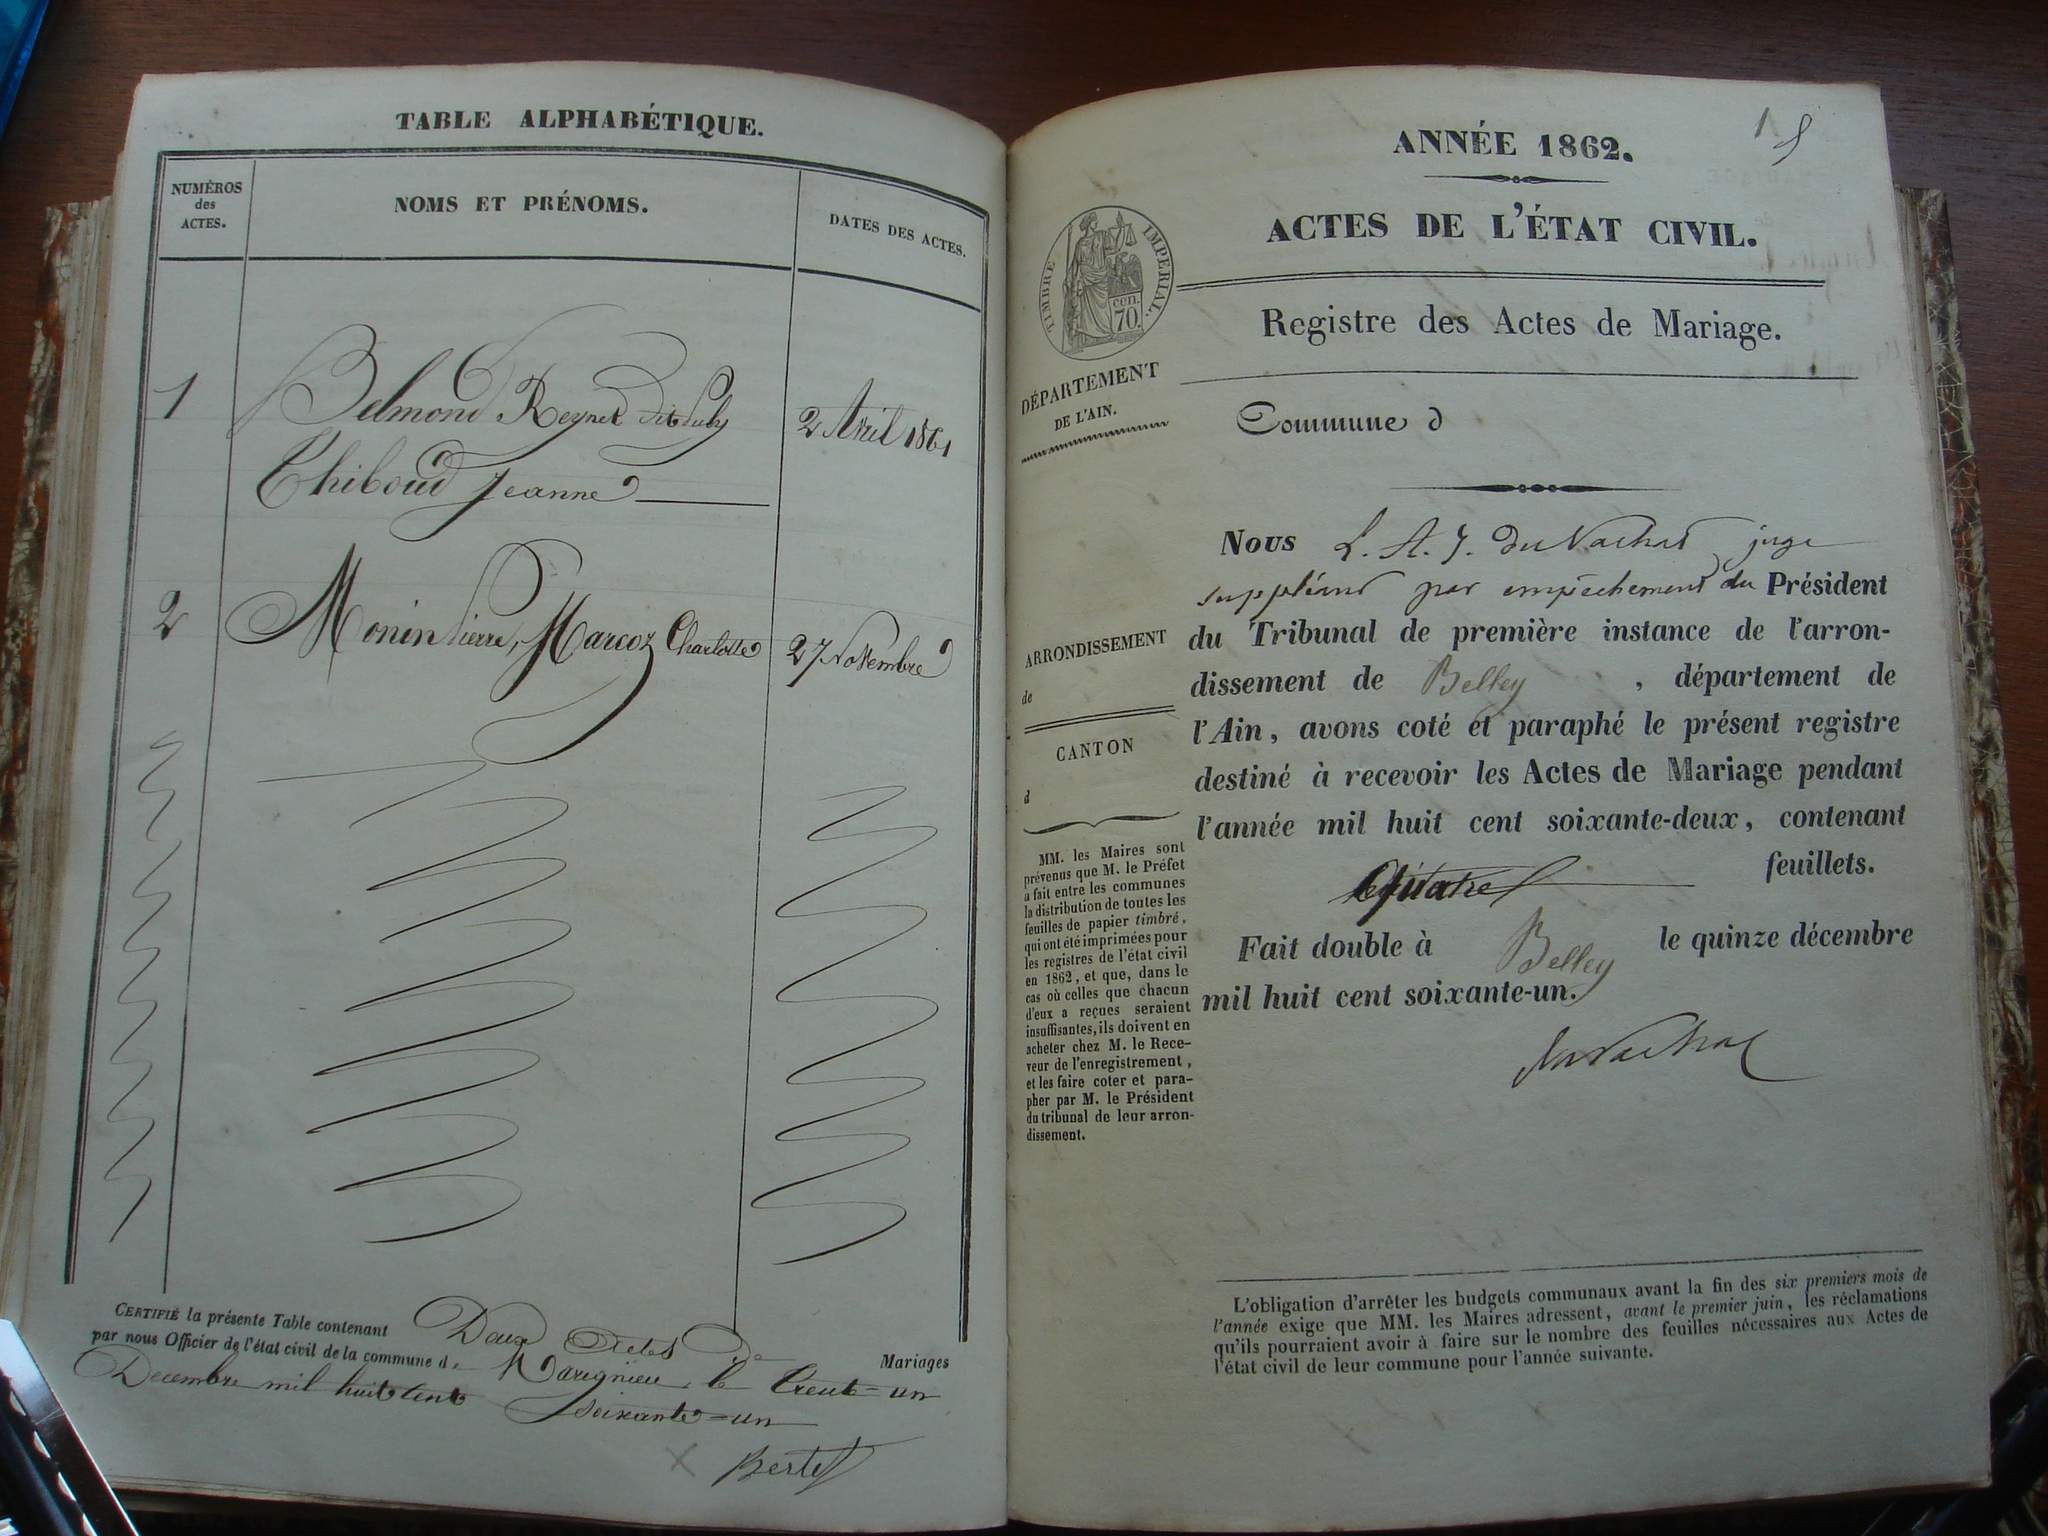 TABLE ALPHABÉTIQUE.
NUMÉROS
des
ACTES.
NOMS ET PRÉNOMS.
DATES DES ACTES.
1
Belmond Reynet dit
2 Avril 1861
Thiboud Jeanne
2
Monin Pierre, Marcoz Charlotte
27 Novembre
CERTIFIÉ la présente Table contenant Deux Actes de Mariages
par nous Officier de l'état civil de la commune de Marignieu, le trente-un
Decembre mil huit cent soixante-un
Bertet
1
ANNÉE 1862.
ACTES DE L'ÉTAT CIVIL.
TIMBRE IMPÉRIAL.
cen.
70.
Registre des Actes de Mariage.
DÉPARTEMENT
DE L'AIN.
Commune d
ARRONDISSEMENT
de
CANTON
d
MM. les Maires sont
prévenus que M. le Préfet
a fait entre les communes
la distribution de toutes les
feuilles de papier timbré,
qui ont été imprimées pour
les registres de l'état civil
en 1862, et que, dans le
cas où celles que chacun
d'eux a reçues seraient
insuffisantes, ils doivent en
acheter chez M. le Rece-
veur de l'enregistrement,
et les faire coter et para-
pher par M. le Président
du tribunal de leur arron-
dissement.
Nous L. A. J. du Vachat juge
suppléant par empêchement du Président
du Tribunal de première instance de l'arron-
dissement de Belley, département de
l'Ain, avons coté et paraphé le présent registre
destiné à recevoir les Actes de Mariage pendant
l'année mil huit cent soixante-deux, contenant
quatre feuillets.
Fait double à Belley le quinze décembre
mil huit cent soixante-un.
du Vachat
L'obligation d'arrêter les budgets communaux avant la fin des six premiers mois de
l'année exige que MM. les Maires adressent, avant le premier juin, les réclamations
qu'ils pourraient avoir à faire sur le nombre des feuilles nécessaires aux Actes de
l'état civil de leur commune pour l'année suivante.